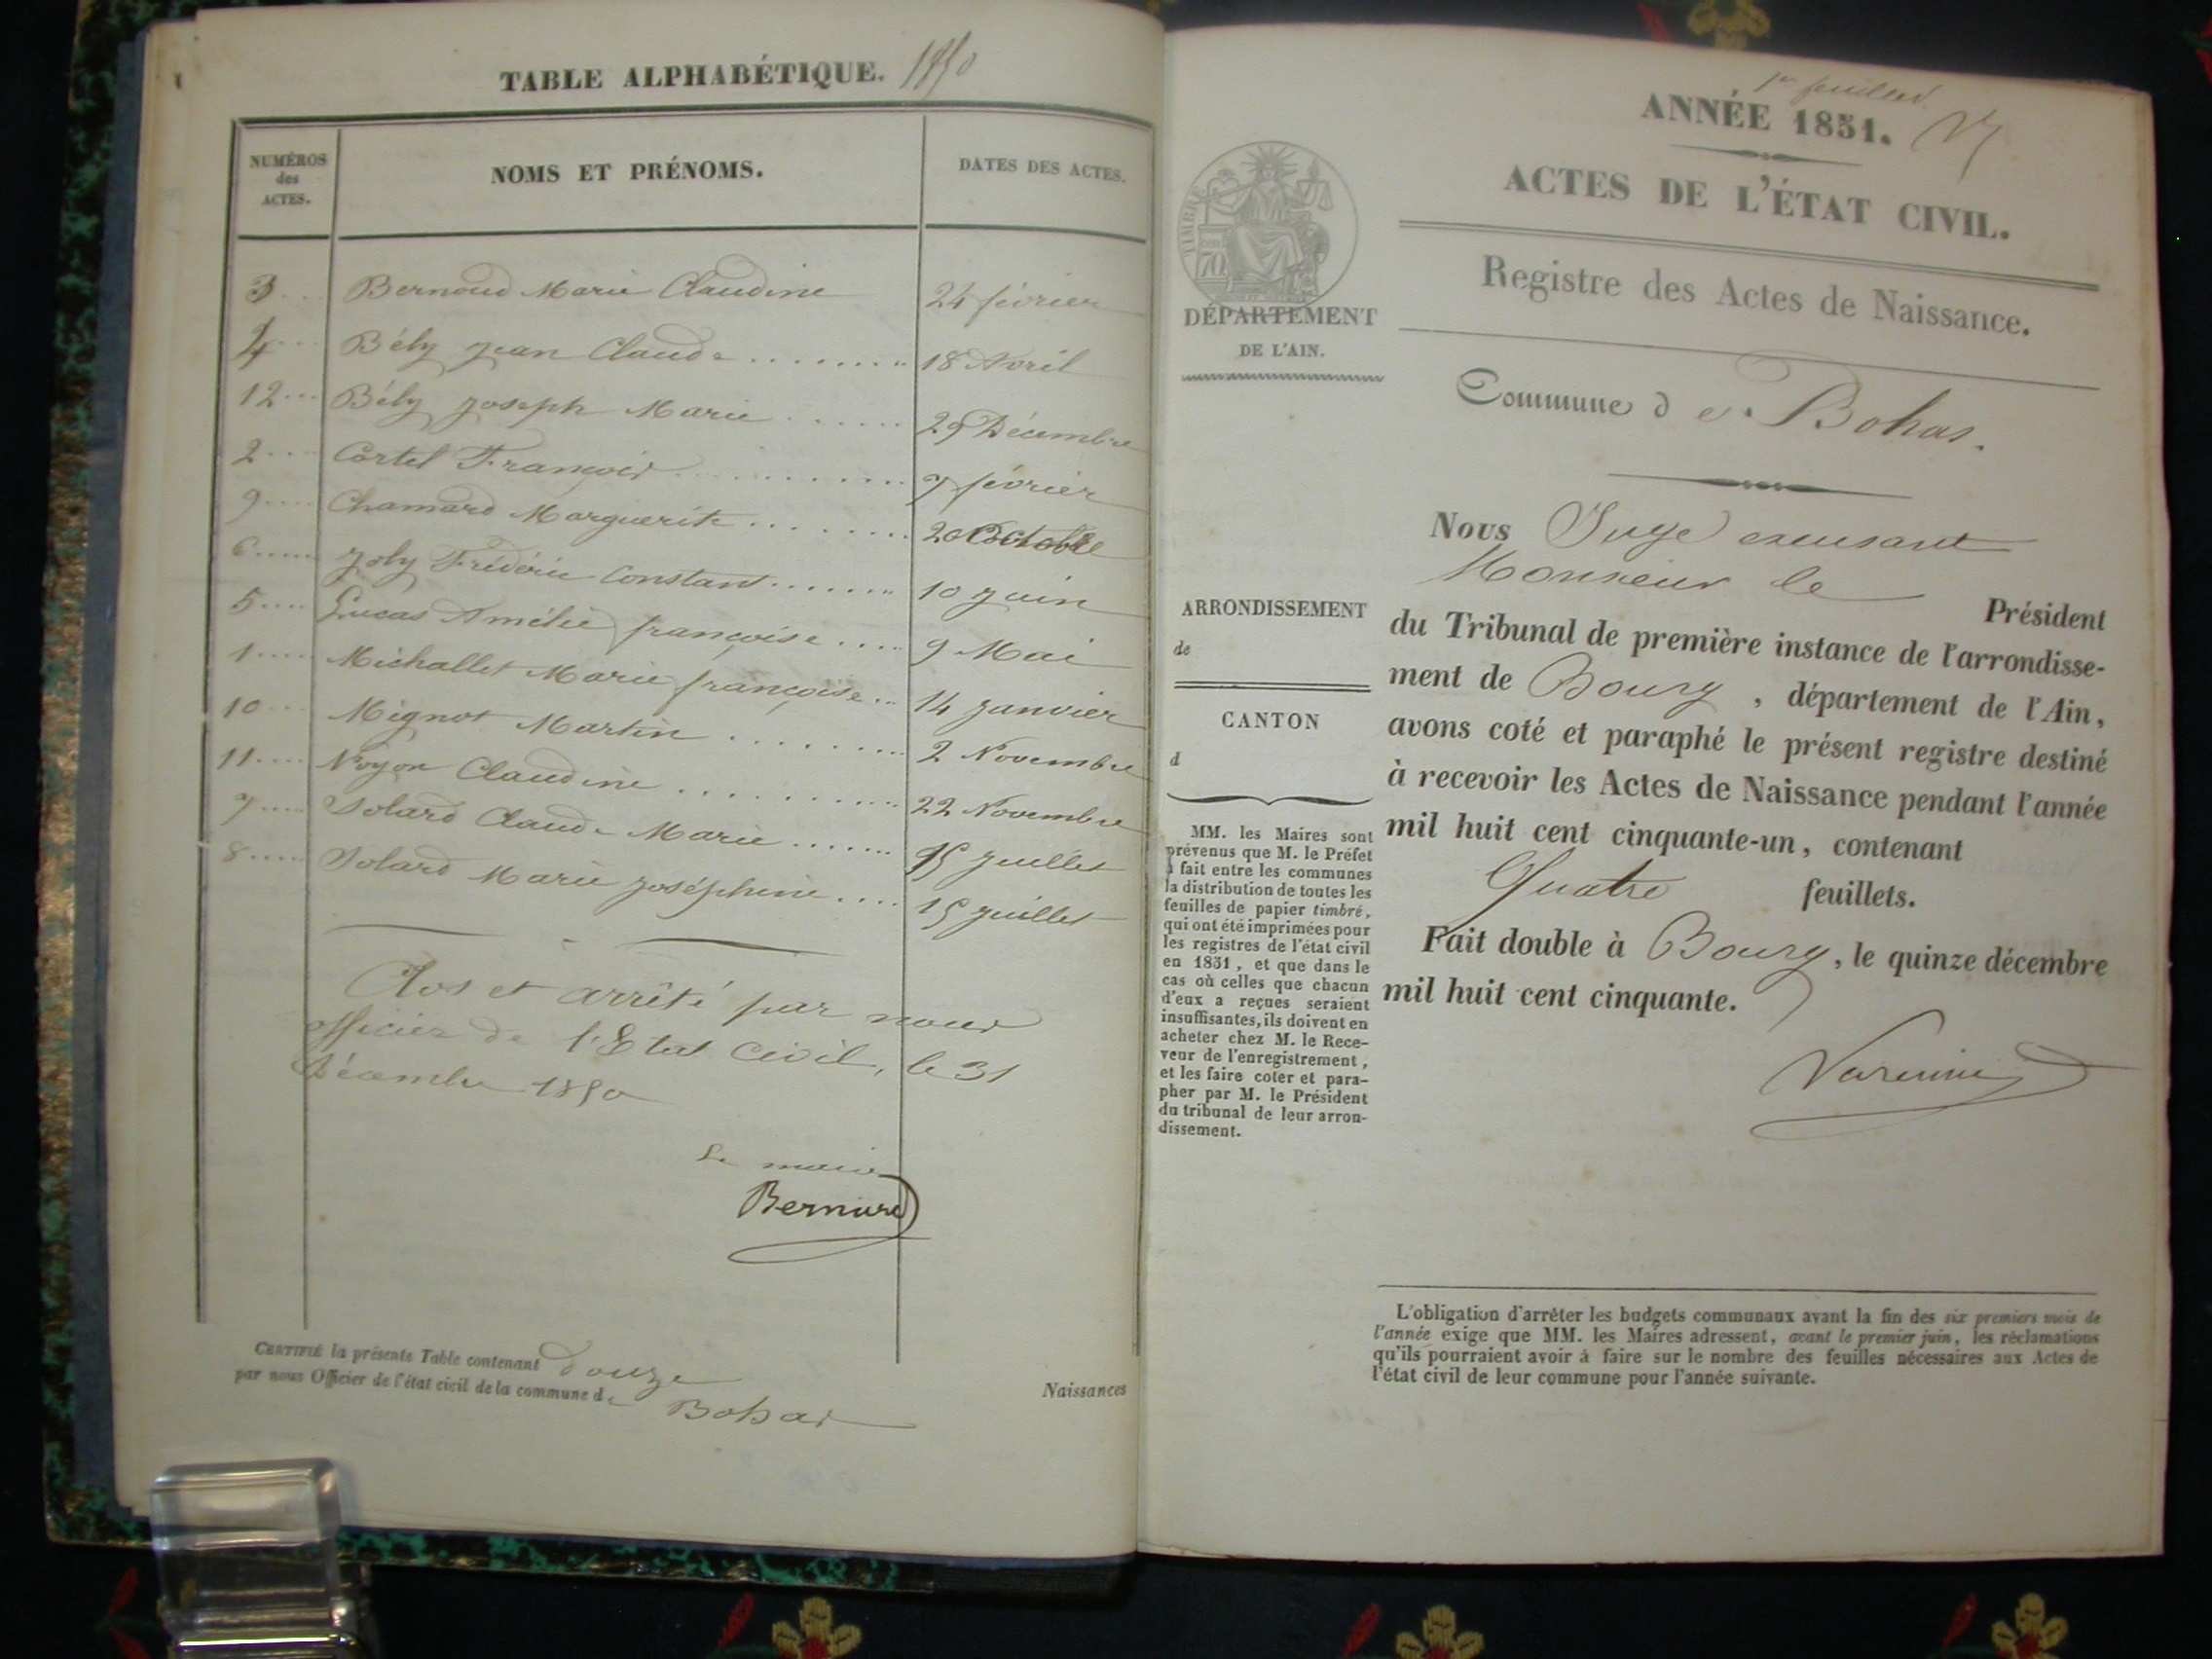 TABLE ALPHABÉTIQUE. 1850
NUMÉROS des ACTES. NOMS ET PRÉNOMS. DATES DES ACTES.
3... Bernoud Marie Claudine 24 février
4... Bély Jean Claude ........ 18 Avril
12... Bély Joseph Marie ...... 29 Décembre
2.... Cortel François ........... 7 février
9.... Chamard Marguerite ....... 20 Octobre
6..... Joly Frédéric Constant ....... 10 Juin
5.... Lucas Amélie françoise .... 9 Mai
1.... Michallet Marie françoise.. 14 Janvier
10... Mignot Martin ......... 2 Novembre
11.... Noyon Claudine .......... 22 Novembre
7.... Solard Claude Marie ....... 15 Juillet
8..... Solard Marie Joséphine .... 15 Juillet
Clos et arrêté par nous
officier de l'Etat Civil, le 31
Décembre 1850
Le maire
Bernard
CERTIFIÉ la présente Table contenant douze Naissances
par nous Officier de l'état civil de la commune de Bohas
1er feuillet
ANNÉE 1851.
ACTES DE L'ÉTAT CIVIL.
Registre des Actes de Naissance.
TIMBRE
70
DÉPARTEMENT
DE L'AIN.
Commune de Bohas.
ARRONDISSEMENT
de
CANTON
d
MM. les Maires sont
prévenus que M. le Préfet
a fait entre les communes
la distribution de toutes les
feuilles de papier timbré,
qui ont été imprimées pour
les registres de l'état civil
en 1851, et que dans le
cas où celles que chacun
d'eux a reçues seraient
insuffisantes, ils doivent en
acheter chez M. le Rece-
veur de l'enregistrement,
et les faire coter et para-
pher par M. le Président
du tribunal de leur arron-
dissement.
Nous Juge
Monsieur le Président
du Tribunal de première instance de l'arrondisse-
ment de Bourg, département de l'Ain,
avons coté et paraphé le présent registre destiné
à recevoir les Actes de Naissance pendant l'année
mil huit cent cinquante-un, contenant
Quatre feuillets.
Fait double à Bourg, le quinze décembre
mil huit cent cinquante.
L'obligation d'arrêter les budgets communaux avant la fin des six premiers mois de
l'année exige que MM. les Maires adressent, avant le premier juin, les réclamations
qu'ils pourraient avoir à faire sur le nombre des feuilles nécessaires aux Actes de
l'état civil de leur commune pour l'année suivante.